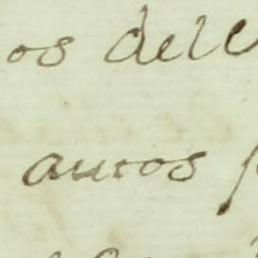 os dele
autos